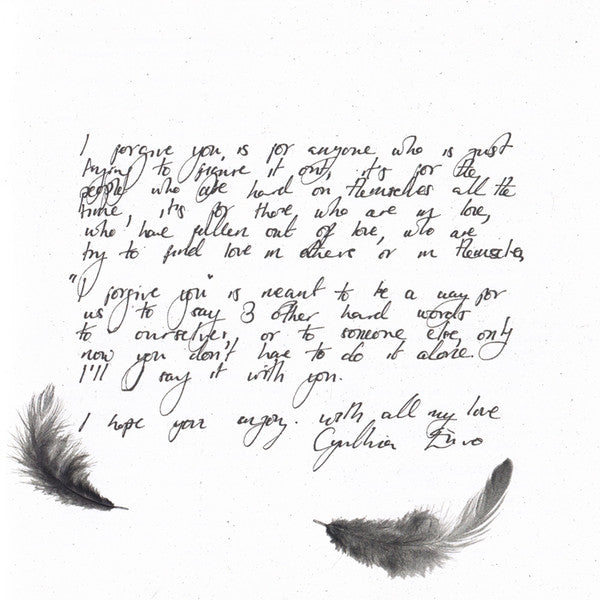 I forgive you, is for anyone who is just
trying to figure it out, it's for the
people who are hard on themselves all the
time, it's for those who are in love,
who have fallen out of love, who are
try to find love in others or in themselves,
"I forgive you" is meant to be a way for
us to say 3 other hard words
to ourselves, or to someone else, only
now you don't have to do it alone.
I'll say it with you.
I hope you enjoy. with all my love
Cynthia Erivo